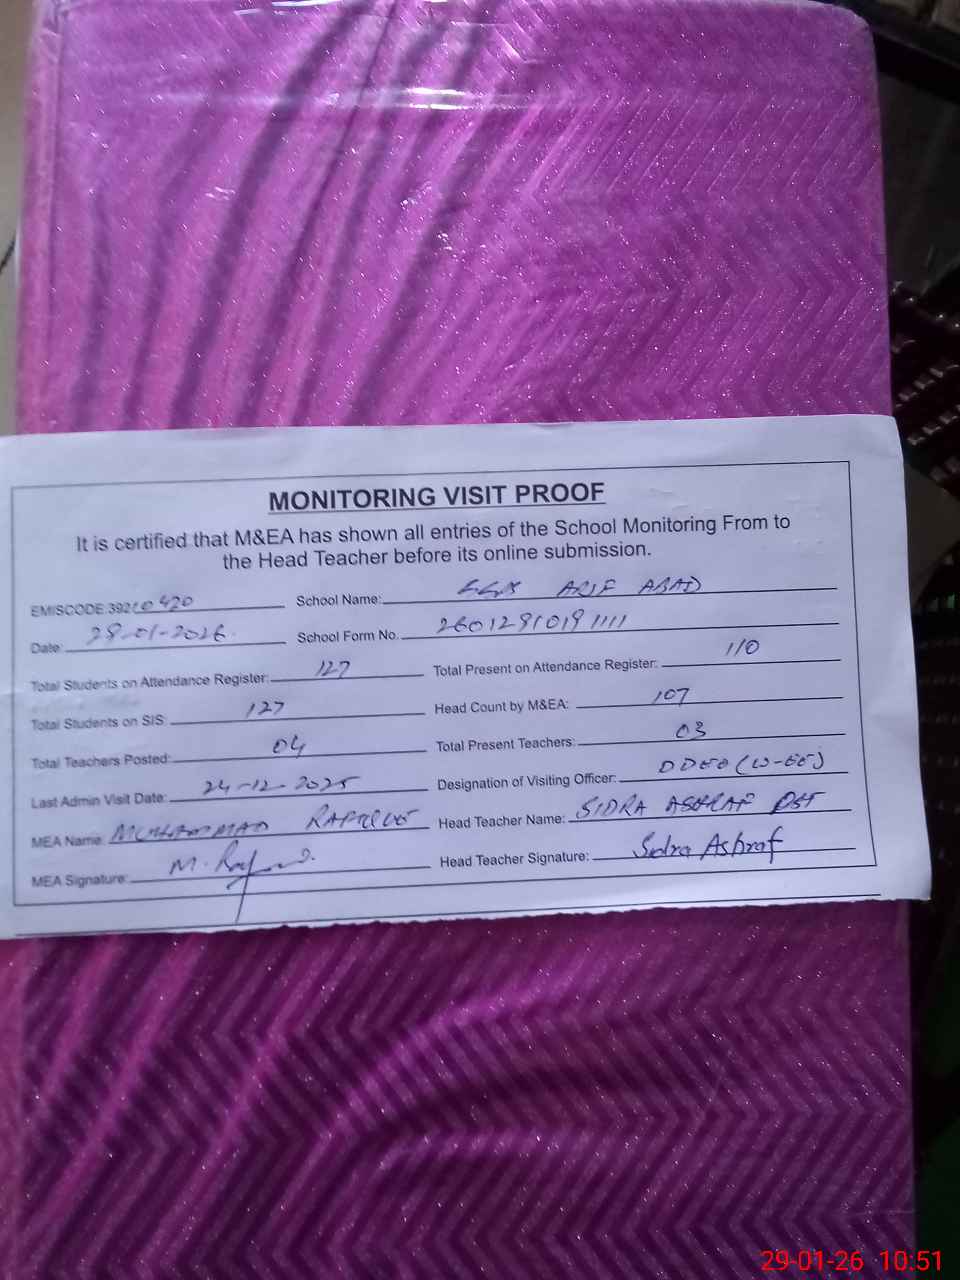 MONITORING VISIT PROOF
It is certified that M&EA has shown all entries of the School Monitoring From to
the Head Teacher before its online submission.
EMISCODE 39210420 School Name: GGPS ARIF ABAD
Date: 29-01-2026. School Form No. 26012910191111
Total Students on Attendance Register: 127 Total Present on Attendance Register: 110
Total Students on SIS: 127 Head Count by M&EA: 107
Total Teachers Posted: 04 Total Present Teachers: 03
Last Admin Visit Date: 24-12-2025 Designation of Visiting Officer: DDEO (W-EE)
MEA Name: MUHAMMAD Head Teacher Name: SIDRA ASHRAF PST
MEA Signature: M. Head Teacher Signature: Sidra Ashraf
29-01-26 10:51